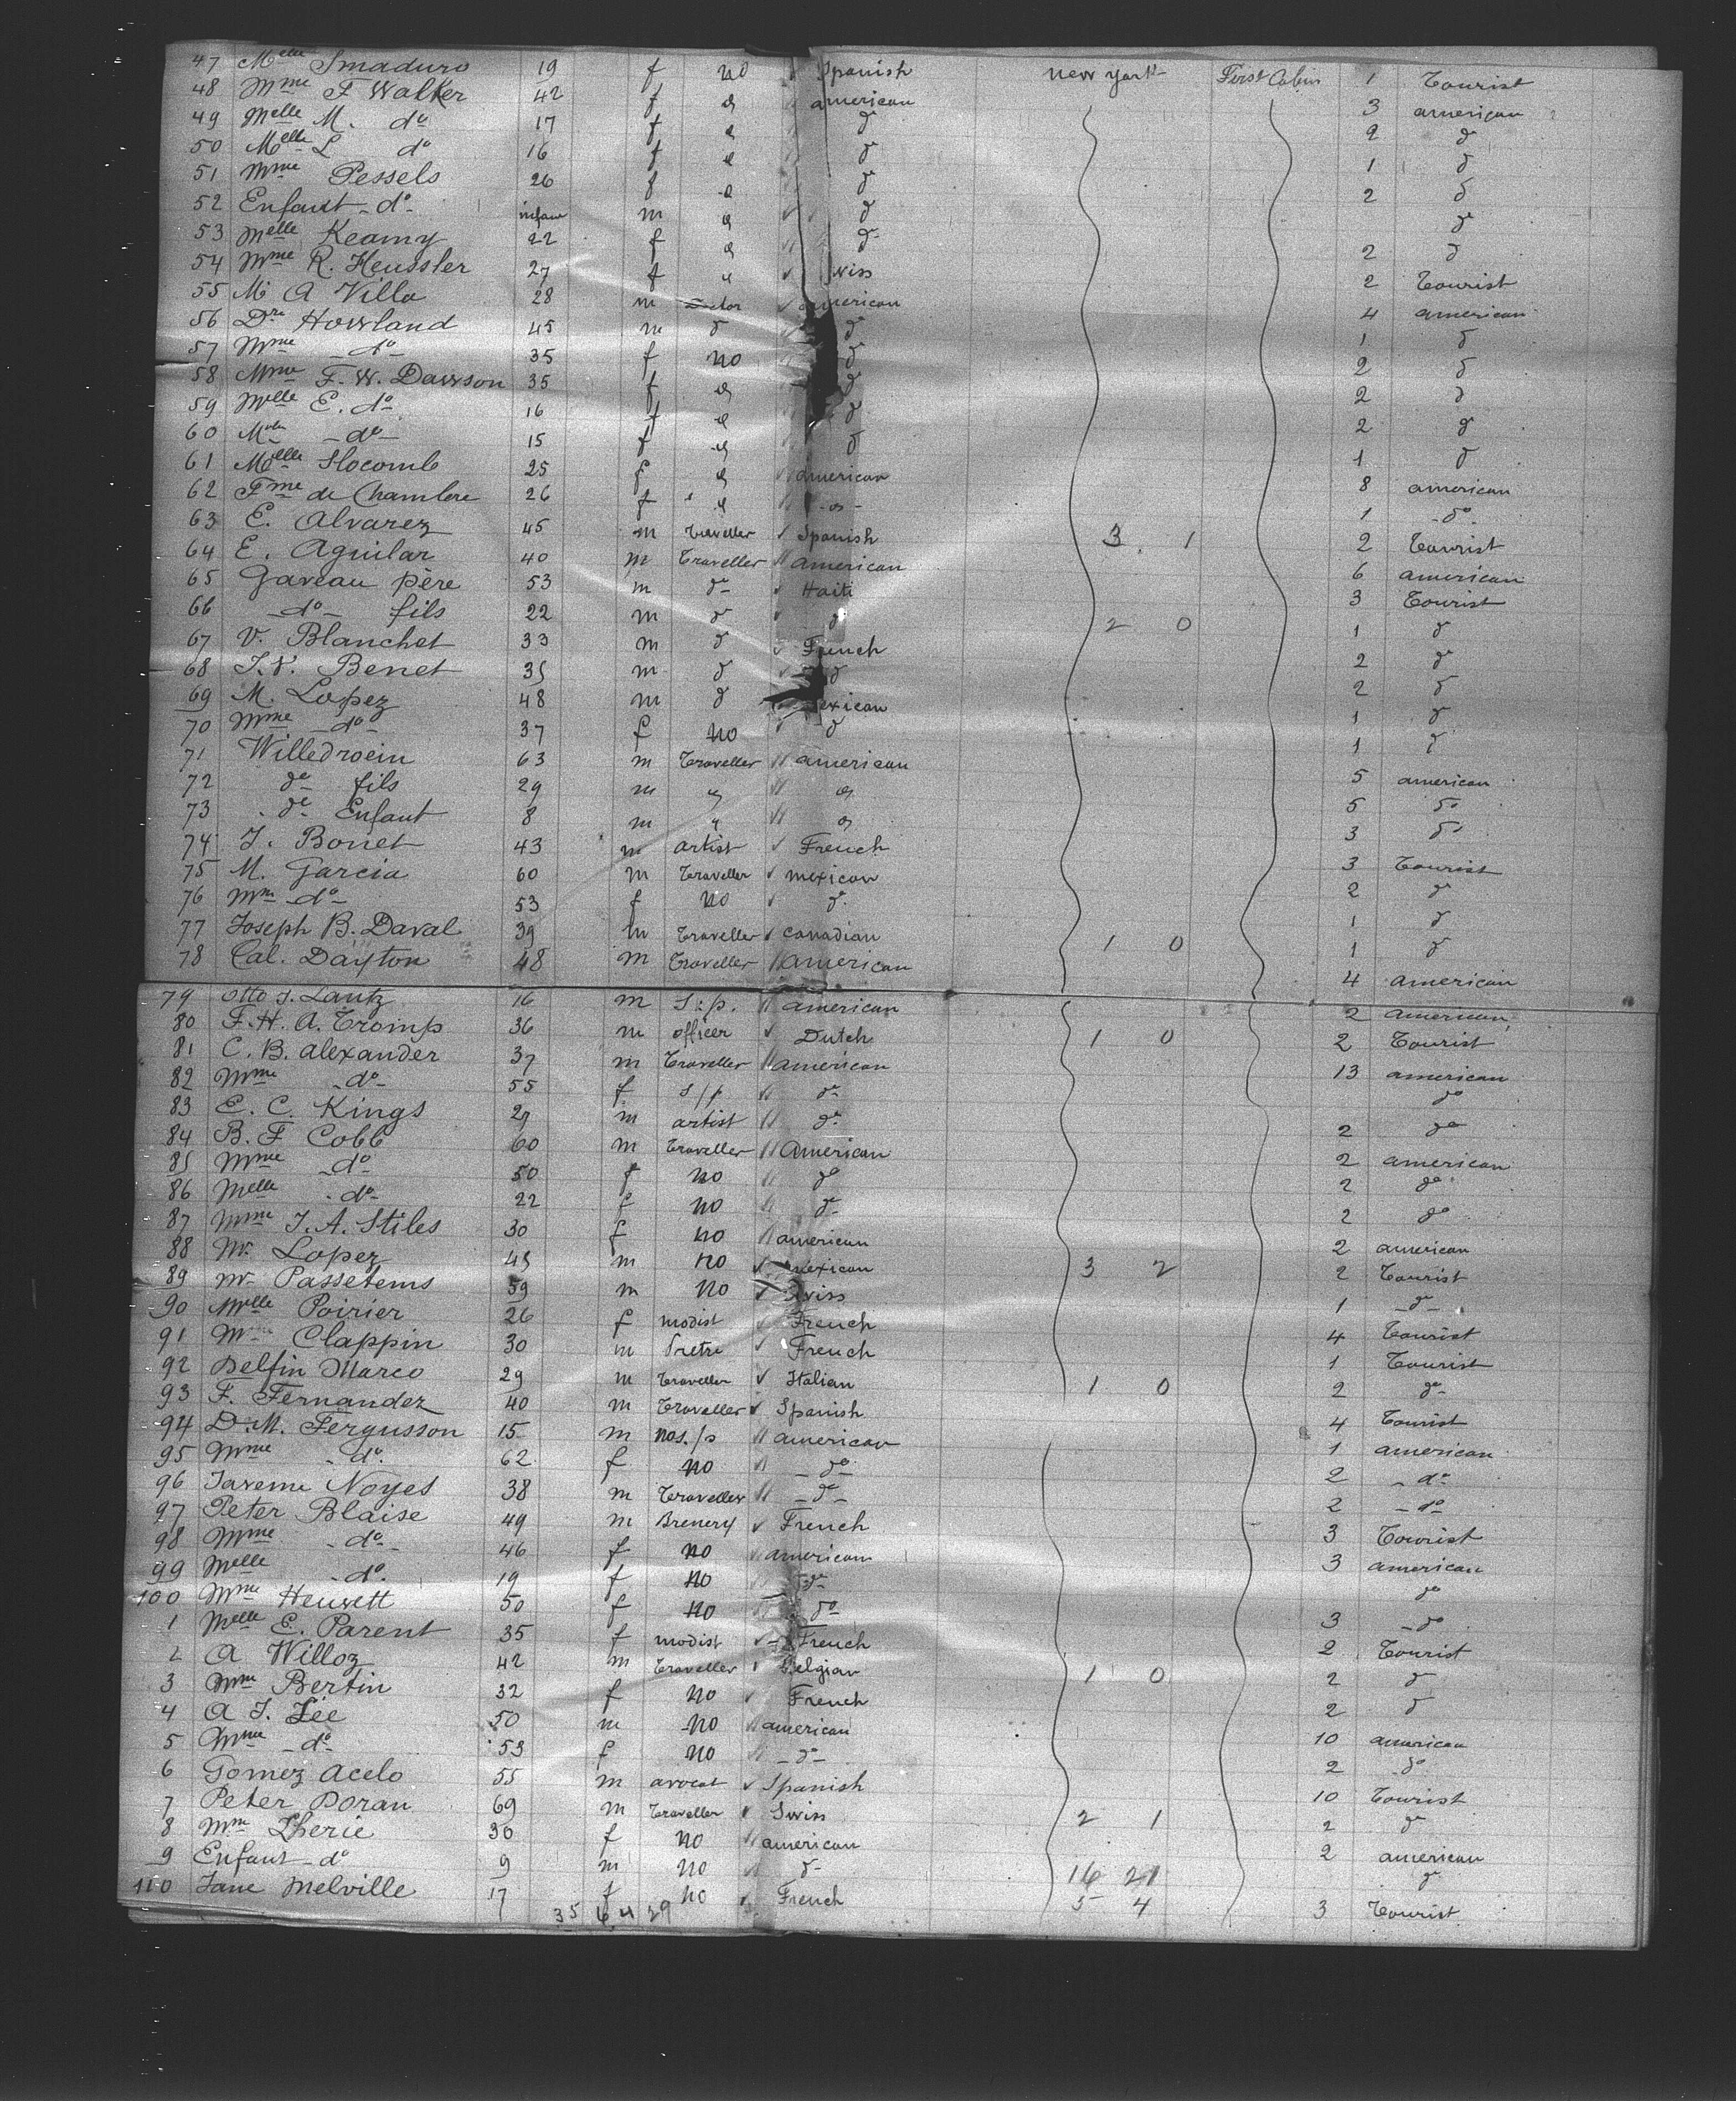 47 Melle Smaduro 19 f no Spanish New York First Cabin 1 Tourist
48 Mme F Walker 42 f d american 3 american
49 Melle M. do 17 f d do 2 do
50 Melle L do 16 f d do 1 do
51 Mme Pessels 26 f d do 2 do
52 Enfant - do - infant m d do do
53 Melle Keamy 22 f d do 2 do
54 Mme R. Heussler 27 f d Swiss 2 Tourist
55 Mr A Villa 28 m american 4 american
56 Dr Howland 45 m do do 1 do
57 Mme - do - 35 f no do 2 do
58 Mme F. W. Dawson 35 f d do 2 do
59 Melle E. do 16 f d do 2 do
60 Melle - do - 15 f d do 1 do
61 Melle Slocomb 25 f d american 8 american
62 Fme de Chambre 26 f d - do - 1 do
63 E. Alvarez 45 m Traveller Spanish 3 1 2 Tourist
64 E. Aguilar 40 m Traveller american 6 american
65 Gaveau père 53 m do Haiti 3 Tourist
66 - do - fils 22 m do do 2 0 1 do
67 V. Blanchet 33 m do French 2 do
68 J. V. Benet 35 m do do 2 do
69 M. Lopez 48 m do Mexican 1 do
70 Mme do 37 f no do 1 do
71 Willedroein 63 m Traveller american 5 american
72 do fils 29 m do do 5 do
73 do Enfant 8 m do do 3 do
74 J. Bonet 43 m artist French 3 Tourist
75 M. Garcia 60 m Traveller mexican 2 do
76 Mme do 53 f no do 1 do
77 Joseph B. Daval 39 m Traveller canadian 1 0 1 do
78 Cal. Dayton 48 m Traveller american 4 american
79 Otto J. Lantz 16 m s:p. american 2 american
80 F. H. A. Tromp 36 m officer Dutch 1 0 2 Tourist
81 C. B. Alexander 37 m Traveller american 13 american
82 Mme - do - 55 f s/p do do
83 E. C. Kings 27 m artist do 2 do
84 B. F Cobb 60 m Traveller American 2 american
85 Mme - do - 50 f no do 2 do
86 Melle - do - 22 f no do 2 do
87 Mme J. A. Stiles 30 f no american 2 american
88 Mr Lopez 45 m no mexican 3 2 2 Tourist
89 Mr Passetems 59 m no Swiss 1 - do -
90 Melle Poirier 26 f modist French 4 Tourist
91 Mr Clappin 30 m Pretre French 1 Tourist
92 Delfin Marco 29 m Traveller Italian 1 0 2 do
93 F. Fernandez 40 m Traveller Spanish 4 Tourist
94 D. M. Fergusson 15 m american 1 american
95 Mme - do. 62 f no - do - 2 - do -
96 Noyes 38 m Traveller - do - 2 - do
97 Peter Blaise 49 m Brenery French 3 Tourist
98 Mme - do - 46 f no american 3 american
99 Melle - do. 19 f no do do
100 Mme Hewett 50 f no do 3 - do
1 Melle E. Parent 35 f modist French 2 Tourist
2 A Willoz 42 m Traveller Belgian 1 0 2 do
3 Mme Bertin 32 f no French 2 do
4 A J. Lée 50 m no american 10 american
5 Mme - do - 53 f no - do - 2 do
6 Gomez Acelo 55 m avocat Spanish 10 Tourist
7 Peter Doran 69 m Traveller Swiss 2 1 2 do
8 Mme Lherie 30 f no american 2 american
9 Enfant - do 9 m no do 16 21 do
110 Jane Melville 17 f no French 5 4 3 Tourist
35 6 4 29